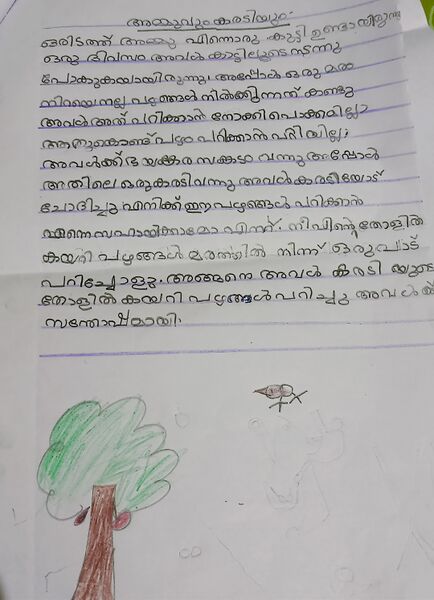 അമ്മുവും കരടിയും
ഒരിടത്ത് അമ്മു എന്നൊരു കുട്ടി ഉണ്ടായിരുന്നു
ഒരു ദിവസം അവൾ കാട്ടിലൂടെ നടന്നു
പോകുകയായിരുന്നു. അപ്പോൾ ഒരു മരം
നിറയെ നല്ല പഴങ്ങൾ നിൽക്കുന്നത് കണ്ടു
അവൾ അത് പറിക്കാൻ നോക്കി പൊക്കമില്ലാ
ത്തതുകൊണ്ട് പഴം പറിക്കാൻ പറ്റിയില്ല;
അവൾക്ക് ഭയങ്കര സങ്കടം വന്നു അപ്പോൾ
അതിലെ ഒരു കരടി വന്നു അവൾ കരടിയോട്
ചോദിച്ചു എനിക്ക് ഈ പഴങ്ങൾ പറിക്കാൻ
എന്നെ സഹായിക്കാമോ എന്ന്. നീ എന്റെ തോളിൽ
കയറി പഴങ്ങൾ മരത്തിൽ നിന്ന് ഒരുപാട്
പറിച്ചോളു. അങ്ങനെ അവൾ കരടി യുടെ
തോളിൽ കയറി പഴങ്ങൾ പറിച്ചു അവൾക്ക്
സന്തോഷമായി.